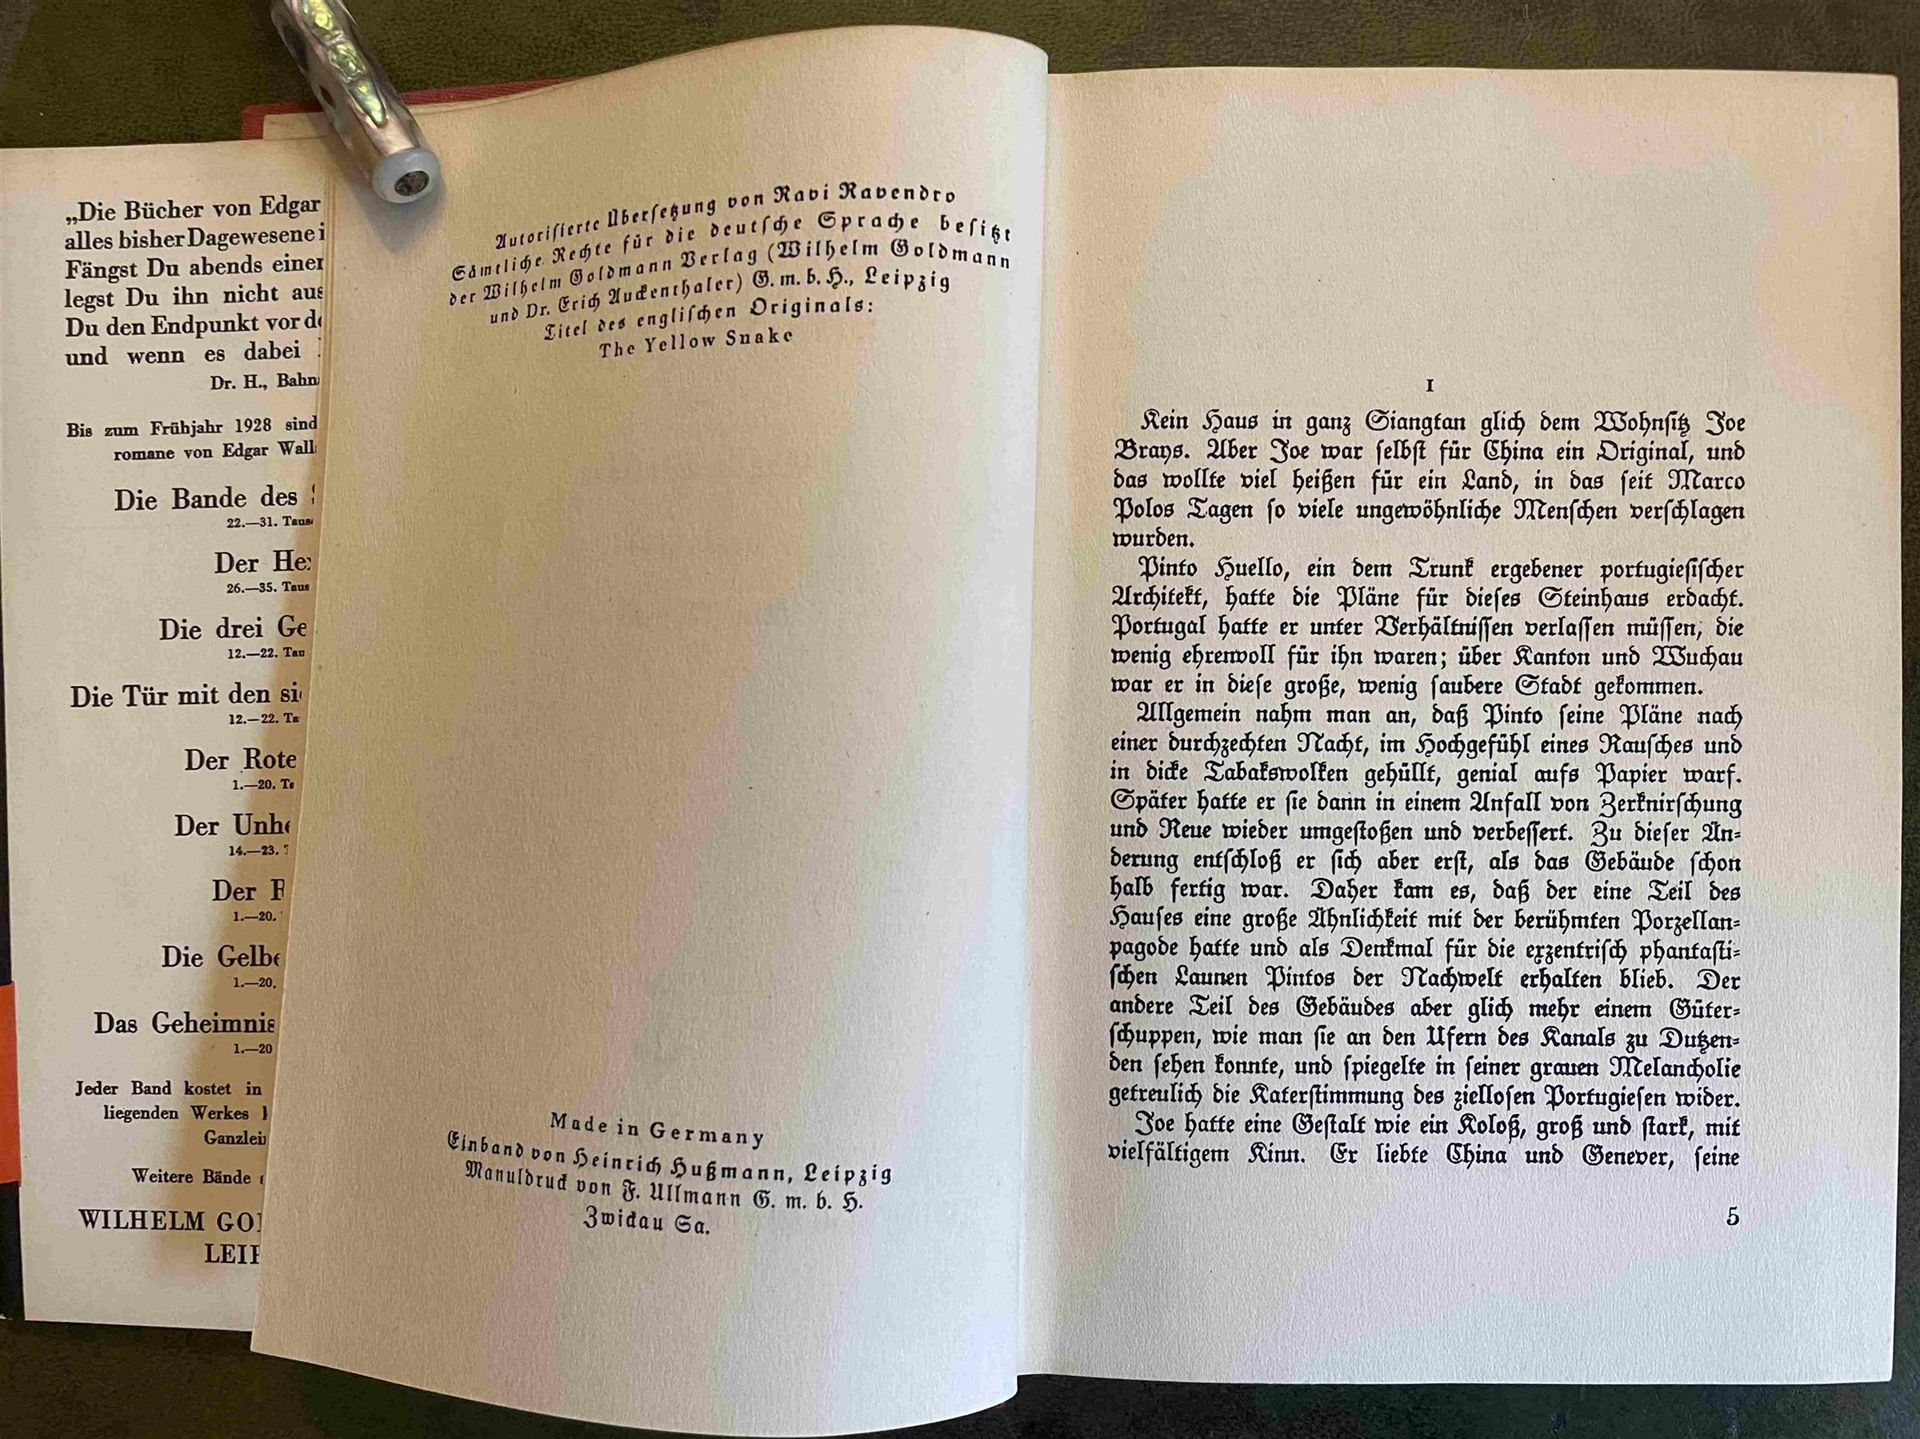 „Die Bücher von Edgar
alles bisher Dagewesene
Fängst Du abends einen
legst Du ihn nicht aus
Du den Endpunkt vor
und wenn es dabei
Dr. H., Bahn
Bis zum Frühjahr 1928 sind
romane von Edgar Wall
Die Bande des
22.—31. Taus
Der He
26.—35. Taus
Die drei Ge
12.—22. Tau
Die Tür mit den si
12.—22. Ta
Der Rote
1.—20. T
Der Unhe
14.—23.
Der R
1.—20.
Die Gelbe
1.—20.
Das Geheimnis
1.—20
Jeder Band kostet in
liegenden Werkes
Ganzlei
Weitere Bände
WILHELM GOL
LEIP
Autorisierte Übersetzung von Ravi Ravendro
Sämtliche Rechte für die deutsche Sprache besitzt
der Wilhelm Goldmann Verlag (Wilhelm Goldmann
und Dr. Erich Auckenthaler) G. m. b. H., Leipzig
Titel des englischen Originals:
The Yellow Snake
Made in Germany
Einband von Heinrich Hußmann, Leipzig
Manuldruck von F. Ullmann G. m. b. H.
Zwickau Sa.
I
Kein Haus in ganz Siangtan glich dem Wohnsitz Joe
Brays. Aber Joe war selbst für China ein Original, und
das wollte viel heißen für ein Land, in das seit Marco
Polos Tagen so viele ungewöhnliche Menschen verschlagen
wurden.
Pinto Huello, ein dem Trunk ergebener portugiesischer
Architekt, hatte die Pläne für dieses Steinhaus erdacht.
Portugal hatte er unter Verhältnissen verlassen müssen, die
wenig ehrenvoll für ihn waren; über Kanton und Wuchau
war er in diese große, wenig saubere Stadt gekommen.
Allgemein nahm man an, daß Pinto seine Pläne nach
einer durchzechten Nacht, im Hochgefühl eines Rausches und
in dicke Tabakswolken gehüllt, genial aufs Papier warf.
Später hatte er sie dann in einem Anfall von Zerknirschung
und Reue wieder umgestoßen und verbessert. Zu dieser Än-
derung entschloß er sich aber erst, als das Gebäude schon
halb fertig war. Daher kam es, daß der eine Teil des
Hauses eine große Ähnlichkeit mit der berühmten Porzellan-
pagode hatte und als Denkmal für die exzentrisch phantasti-
schen Launen Pintos der Nachwelt erhalten blieb. Der
andere Teil des Gebäudes aber glich mehr einem Güter-
schuppen, wie man sie an den Ufern des Kanals zu Dutzen-
den sehen konnte, und spiegelte in seiner grauen Melancholie
getreulich die Katerstimmung des ziellosen Portugiesen wider.
Joe hatte eine Gestalt wie ein Koloß, groß und stark, mit
vielfältigem Kinn. Er liebte China und Genever, seine
5